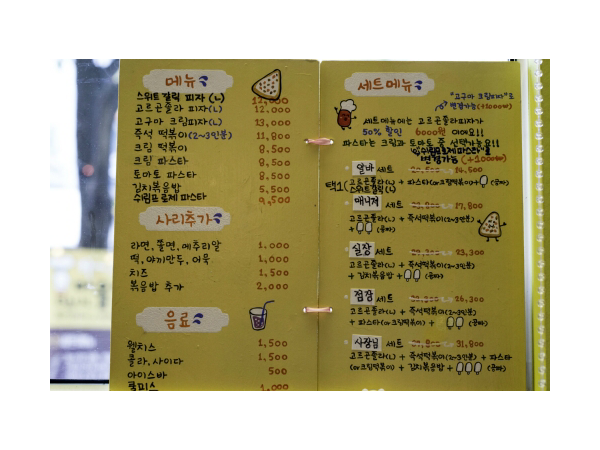 메뉴
스위트 갈릭 피자 (L) 12,000
고르곤졸라 피자(L) 12,000
고구마 크림피자(L) 13,000
즉석 떡볶이(2~3인분) 11,800
크림 떡볶이 8,500
크림 파스타 8,500
토마토 파스타 8,500
김치볶음밥 5,500
쉬림프로제 파스타 9,500
사리추가
라면, 쫄면, 메추리알 1,000
떡, 야끼만두, 어묵 1,000
치즈 1,500
볶음밥 추가 2,000
음료
웰치스 1,500
콜라, 사이다 1,500
아이스바 500
쿨피스 1,000
세트메뉴
"고구마 크림피자"로
변경가능(+1000₩)
세트메뉴에는 고르곤졸라피자가
50% 할인 6000원 이에요!!
파스타는 크림과 토마토 중 선택가능요!!
"쉬림프로제 파스타"로
변경가능 (+1000₩)
알바 세트 14,500
택1(스위트갈릭(L) 고르곤졸라(L) + 파스타(or크림떡볶이)+ (공짜)
매니져 세트 17,800
고르곤졸라(L) + 즉석떡볶이(2~3인분)
+ (공짜)
실장 세트 23,300
고르곤졸라(L) + 즉석떡볶이(2~3인분)
+ 김치볶음밥 + (공짜)
점장 세트 26,300
고르곤졸라(L) + 즉석떡볶이(2~3인분)
+ 파스타(or크림떡볶이) + (공짜)
사장님 세트 31,800
고르곤졸라(L) + 즉석떡볶이(2~3인분) + 파스타
(or크림떡볶이) + 김치볶음밥 + (공짜)